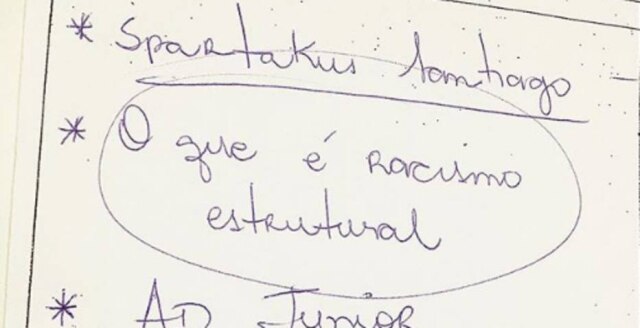 * Spartakus Santiago
* O que é racismo
estrutural
* AD Junior